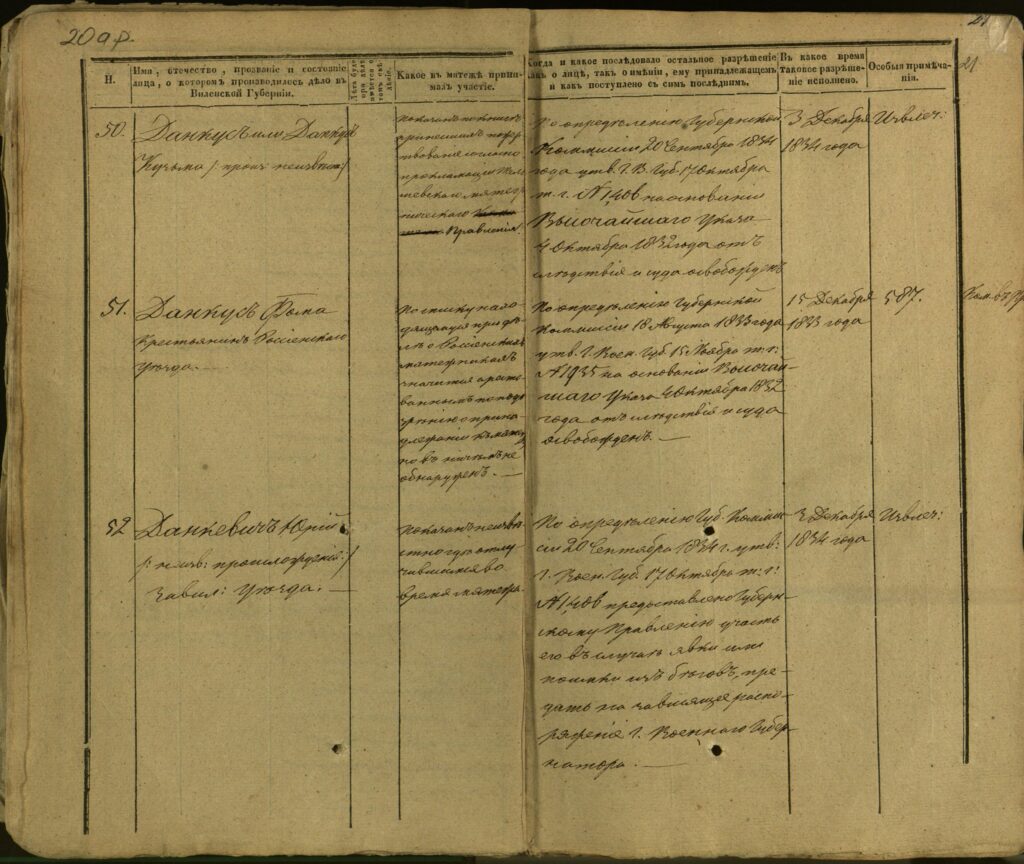 20 а р.
21
21
Н.
Имя, отечество, прозваніе и состояніе
лица, о которомъ производилось дѣло въ
Виленской Губерніи.
Какое въ мятежѣ прини-
малъ участіе.
Когда и какое послѣдовало остальное разрѣшеніе
какъ о лицѣ, такъ о имѣніи, ему принадлежащемъ
и какъ поступлено съ симъ послѣднимъ.
Въ какое время
таковое разрѣше-
ніе исполнено.
Особыя примѣча-
нія.
50.
Данкусъ или Данкус
Кузьма
Правленія.
По опредѣленію Губернской
Коммисіи 20 Сентября 1834
года утв. Г. В. Губ. 17 Октября
т. г. № 1,406 на основаніи
Высочайшаго Указа
4 Октября 1832 года отъ
слѣдствія и суда освобожденъ
3 Декабря
1834 года
Извлеч:
51.
Данкусъ Фома
Крестьянинъ Россіенскаго
уѣзда.
По списку нахо-
дящемуся при дѣ-
лѣ о Россіенскихъ
мятежникахъ
значится аресто-
ваннымъ по подо-
зрѣнію о прина-
длежаніи къ мятежу
но въ ничемъ не
обнаруженъ.
По опредѣленію Губернской
Коммисіи 18 Августа 1833 года
утв. Г. Воен. Губ. 15 Ноября т. г.
№ 1935 на основаніи Высочай-
шаго Указа 4 Октября 1832
года отъ слѣдствія и суда
освобожденъ.
15 Декабря
1833 года
587.
52
Данкевичъ Юрій
Завил: уѣзда.
показанъ неизвѣ-
стно гдѣ отлу-
чившимся во
время мятежа.
По опредѣленію Губ. Комми-
сіи 20 Сентября 1834 г. утв:
Г. Воен. Губ. 17 Октября т. г:
№ 1,406 предоставлено Губерн-
скому Правленію участь
его въ случаѣ явки или
поимки изъ бѣговъ, пре-
дать на зависящее распо-
ряженіе Г. Военнаго Губер-
натора.
3 Декабря
1834 года
Извлеч: